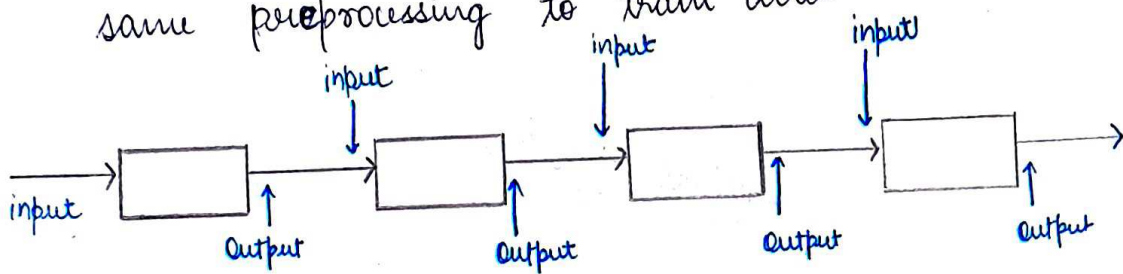 same preprocessing to train
input input input
input
Output Output Output Output